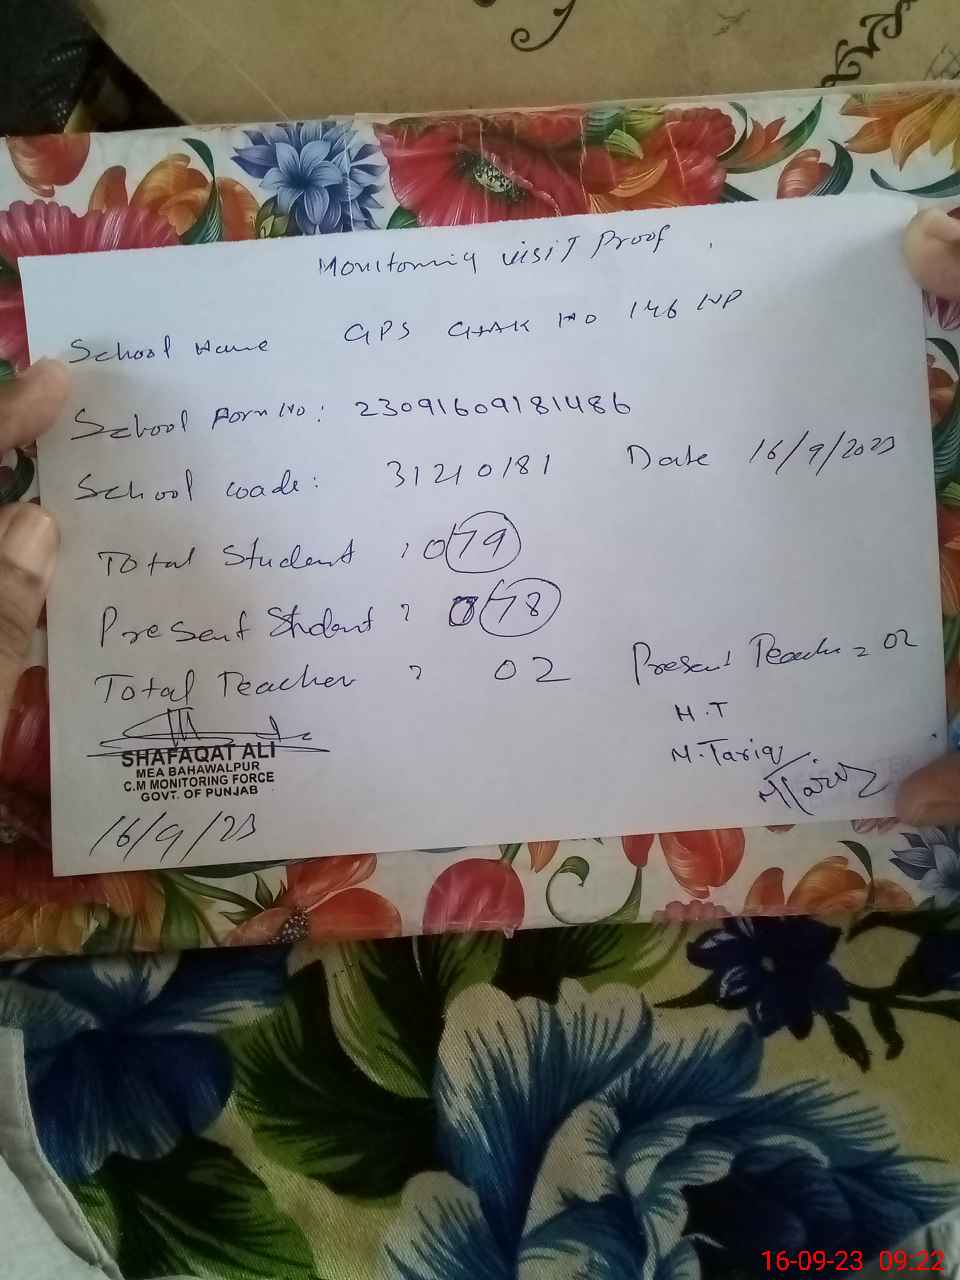 Monitoring visit Proof
School Name GPS CHAK NO 146 NP
School Form No: 23091609181486
School Coade: 31210181 Date 16/9/2023
Total Student : 079
Present Student : 078
Total Teacher : 02 Present Teacher = 02
H.T
M. Tariq
M Tariq
SHAFAQAT ALI
MEA BAHAWALPUR
C.M MONITORING FORCE
GOVT. OF PUNJAB
16/9/23
16-09-23 09:22